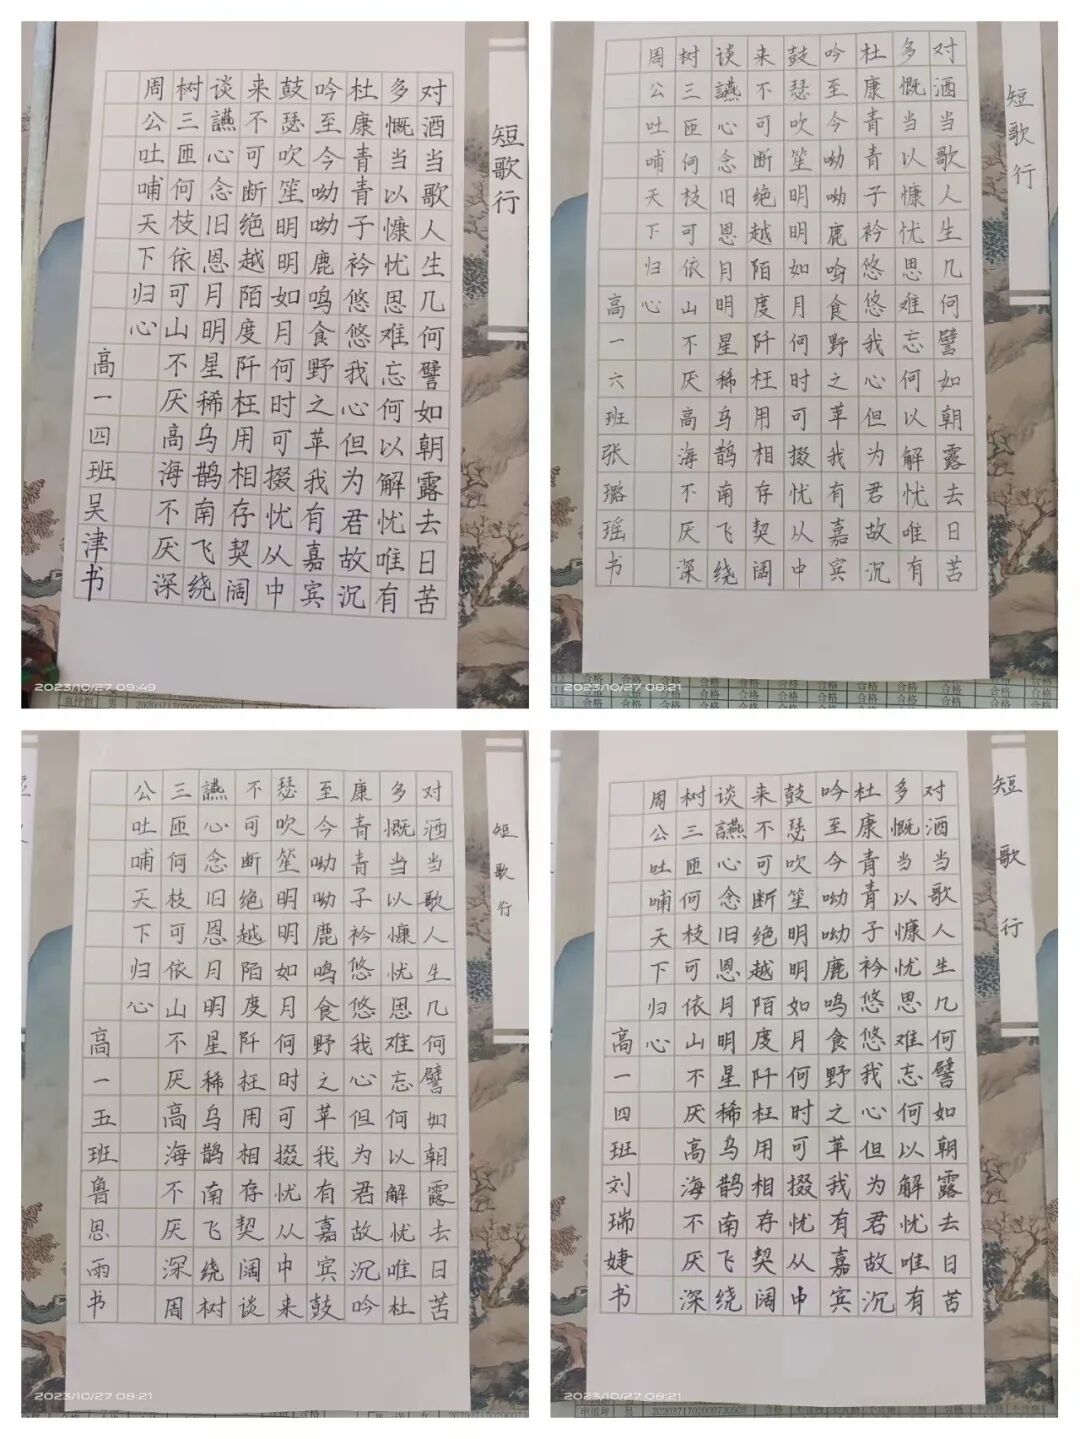 短歌行
对酒当歌人生几何譬如朝露去日苦
多慨当以慷忧思难忘何以解忧唯有
杜康青青子衿悠悠我心但为君故沉
吟至今呦呦鹿鸣食野之苹我有嘉宾
鼓瑟吹笙明明如月何时可掇忧从中
来不可断绝越陌度阡枉用相存契阔
谈讌心念旧恩月明星稀乌鹊南飞绕
树三匝何枝依可山不厌高海不厌深
周公吐哺天下归心
高一四班吴津书
2023/10/27 09:49
短歌行
对酒当歌人生几何譬如朝露去日苦
多慨当以慷忧思难忘何以解忧唯有
杜康青青子衿悠悠我心但为君故沉
吟至今呦呦鹿鸣食野之苹我有嘉宾
鼓瑟吹笙明明如月何时可掇忧从中
来不可断绝越陌度阡枉用相存契阔
谈讌心念旧恩月明星稀乌鹊南飞绕
树三匝何枝可依山不厌高海不厌深
周公吐哺天下归心
高一六班张璐瑶书
2023/10/27 08:21
短歌行
对酒当歌人生几何譬如朝露去日苦
多慨当以慷忧思难忘何以解忧唯杜
康青青子衿悠悠我心但为君故沉吟
至今呦呦鹿鸣食野之苹我有嘉宾鼓
瑟吹笙明明如月何时可掇忧从中来
不可断绝越陌度阡枉用相存契阔谈
讌心念旧恩月明星稀乌鹊南飞绕树
三匝何枝可依山不厌高海不厌深周
公吐哺天下归心
高一五班鲁思雨书
2023/10/27 08:21
短歌行
对酒当歌人生几何譬如朝露去日苦
多慨当以慷忧思难忘何以解忧唯有
杜康青青子衿悠悠我心但为君故沉
吟至今呦呦鹿鸣食野之苹我有嘉宾
鼓瑟吹笙明明如月何时可掇忧从中
来不可断绝越陌度阡枉用相存契阔
谈讌心念旧恩月明星稀乌鹊南飞绕
树三匝何枝可依山不厌高海不厌深
周公吐哺天下归心
高一四班刘瑞婕书
2023/10/27 08:21